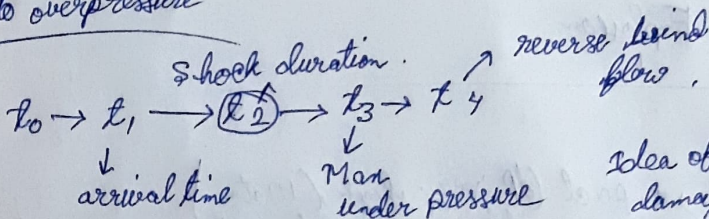 to overpressure
Shock duration.
reverse wind
blow.
t₀ → t₁ → t₂ → t₃ → t₄
arrival time
Max
under pressure
Idea of